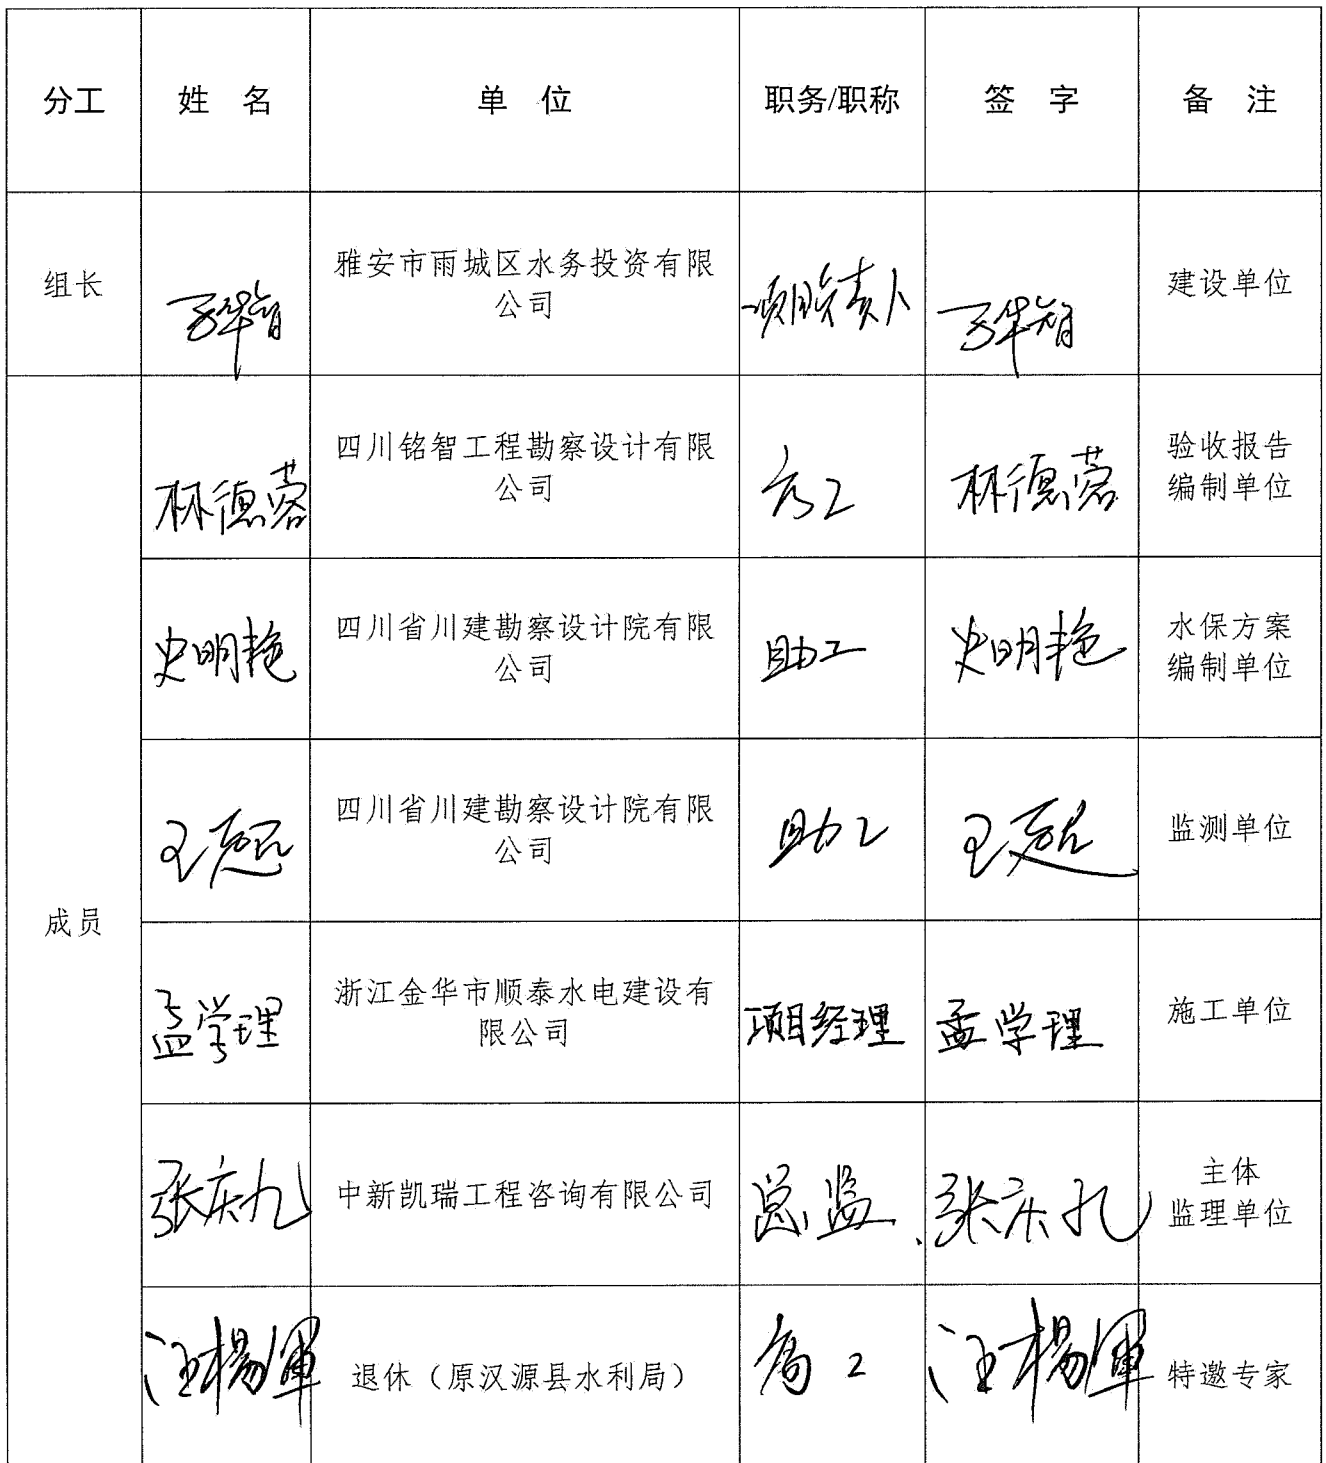 分工 姓 名 单 位 职务/职称 签 字 备 注
组长 雅安市雨城区水务投资有限
公司 项目负责人 建设单位
成员
林德蓉 四川铭智工程勘察设计有限
公司 高工 林德蓉 验收报告
编制单位
史明艳 四川省川建勘察设计院有限
公司 助工 史明艳 水保方案
编制单位
王 四川省川建勘察设计院有限
公司 助工 王 监测单位
孟学理 浙江金华市顺泰水电建设有
限公司 项目经理 孟学理 施工单位
张庆九 中新凯瑞工程咨询有限公司 总监 张庆九 主体
监理单位
汪楊 退休（原汉源县水利局） 高工 汪楊 特邀专家